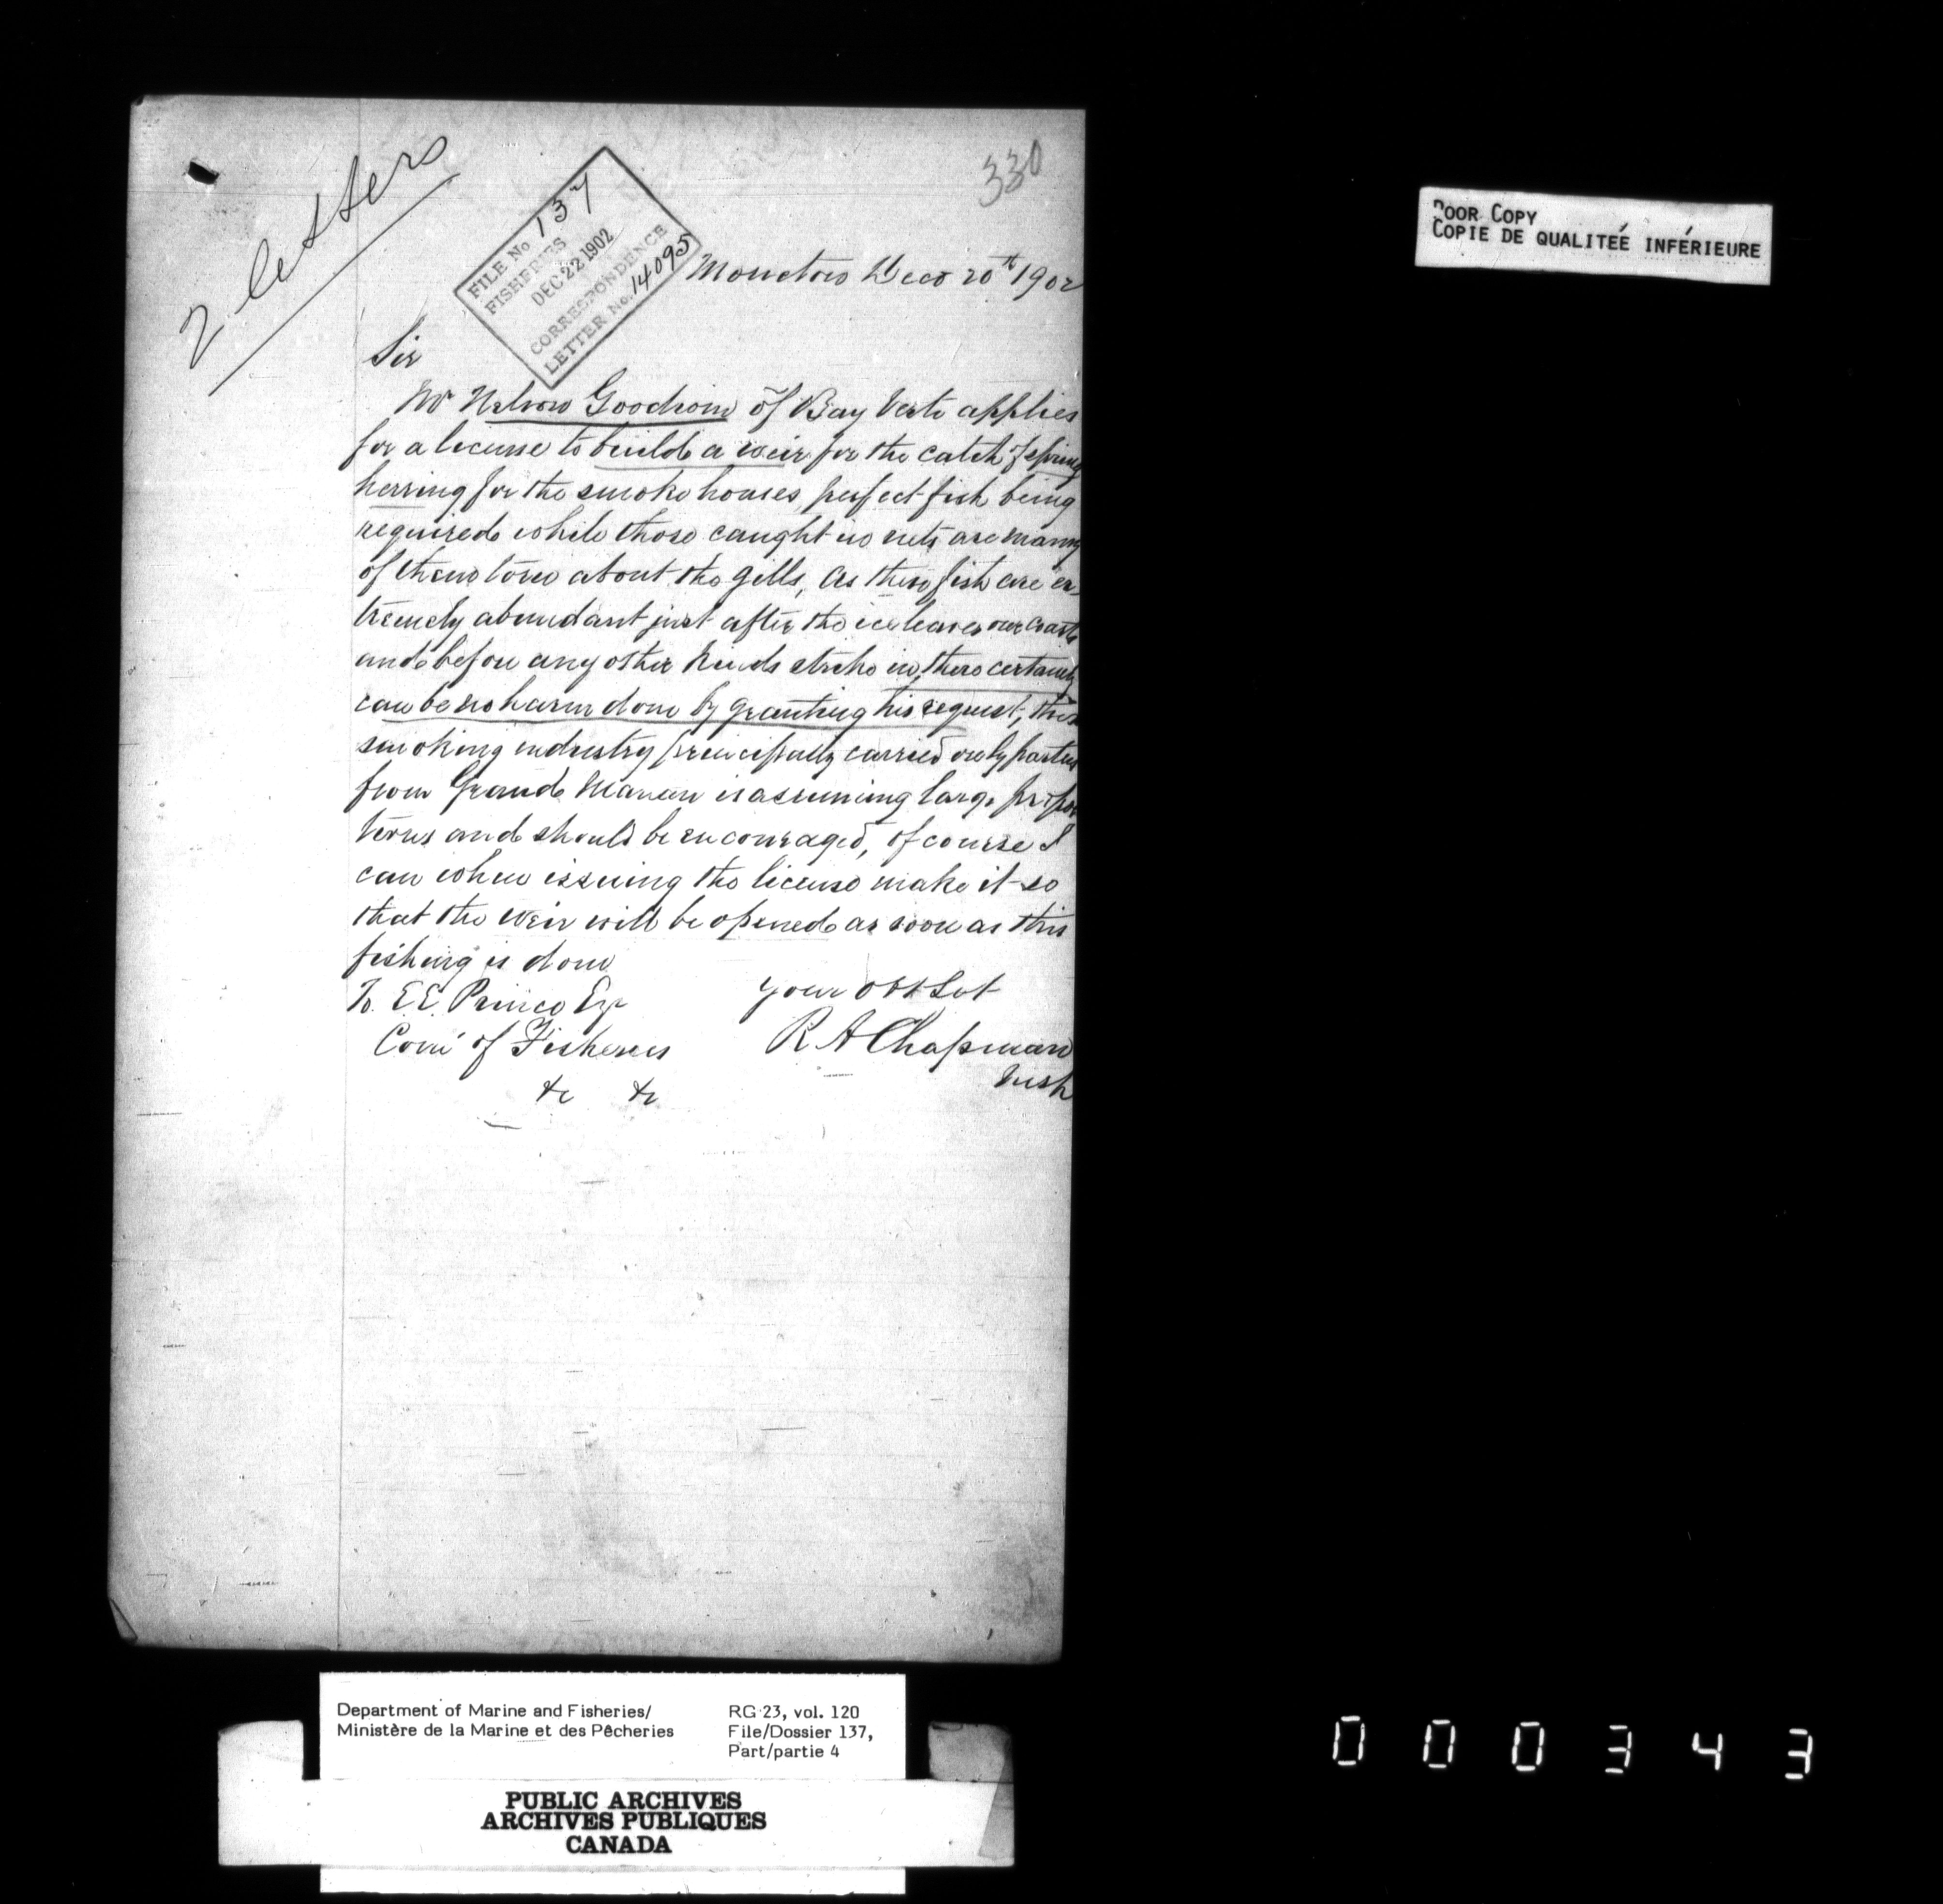 2 letters
330
FILE No 137
FISHERIES
DEC 22 1902
CORRESPONDENCE
LETTER No. 14095
Moncton Decr 20th 1902
Sir
Mr Nelson Goodwin of Bay Verte applies
for a license to build a weir for the catch of spring
herring for the smoke houses, perfect fish being
required while those caught in nets are many
of them torn about the gills, as these fish are ex-
tremely abundant just after the ice leaves our coasts
and before any other kinds strike in, there certainly
can be no harm done by granting his request, this
smoking industry principally carried on by parties
from Grand Manan is assuming large propor
tions and should be encouraged, of course I
can when issuing the license make it so
that the weir will be opened as soon as this
fishing is done
To E.E. Prince Esq
Your Obt Svt
Com of Fisheries
R A Chapman
&c &c
Insp
POOR COPY
COPIE DE QUALITEÉ INFÉRIEURE
Department of Marine and Fisheries/
Ministère de la Marine et des Pêcheries
RG 23, vol. 120
File/Dossier 137,
Part/partie 4
PUBLIC ARCHIVES
ARCHIVES PUBLIQUES
CANADA
000343